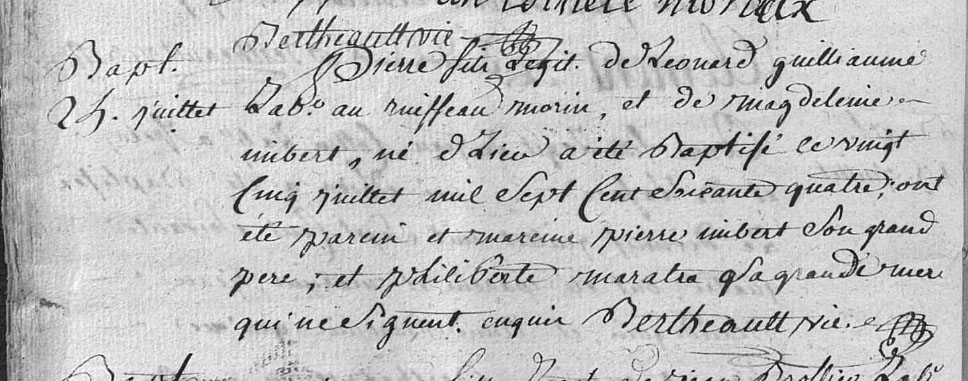 Bertheault vic
Bapt. Pierre fils Legit. de Leonard guilliaume
25. juillet Labr. au ruisseau morin, et de magdeleine
imbert, né d'hier a été Baptisé le vingt
Cinq juillet mil Sept Cent Soixante quatre; ont
été parein et mareine pierre imbert Son grand
pere; et philiberte Sa grande mer
qui ne Signent. enquis Bertheault vic.